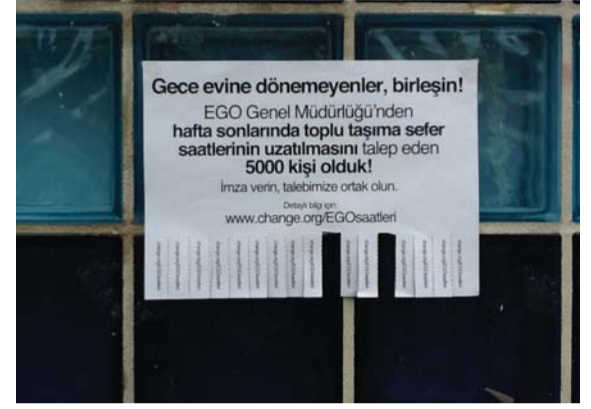 Gece evine dönemeyenler, birleşin!
EGO Genel Müdürlüğü'nden
hafta sonlarında toplu taşıma sefer
saatlerinin uzatılmasını talep eden
5000 kişi olduk!
İmza verin, talebimize ortak olun.
Detaylı bilgi için:
www.change.org/EGOsaatleri